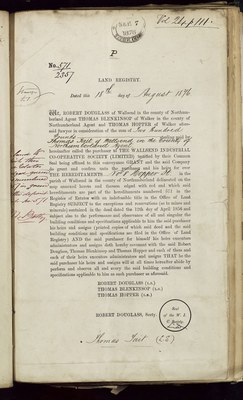 Vol 24 p 111.
P
No. 571
2357
LAND REGISTRY.
Dated this 18th day of August 1896
ROBERT DOUGLASS of Wallsend in the county of Northum-
berland Agent THOMAS BLENKINSOP of Walker in the county of
Northumberland Agent and THOMAS HOPPER of Walker afore-
said lawyer in consideration of the sum of Two Hundred
Pounds
Thomas Tait of Wallsend in the County of
Northumberland
hereinafter called the purchaser to THE WALLSEND INDUSTRIAL
CO-OPERATIVE SOCIETY (LIMITED) testified by their Common
Seal being affixed to this conveyance GRANT and the said Company
do grant and confirm unto the purchaser and his heirs ALL
THE HEREDITAMENTS No 8 Hopper St. in the
parish of Wallsend in the county of Northumberland delineated on the
map annexed hereto and thereon edged with red and which said
hereditaments are part of the hereditaments numbered 571 in the
Register of Estates with an indefeasible title in the Office of Land
Registry SUBJECT to the exceptions and reservations (as to mines and
minerals) contained in the deed dated the 12th day of April 1876 and
subject also to the performance and observance of all and singular the
building conditions and specifications applicable to him the said purchaser
his heirs and assigns (printed copies of which said deed and the said
building conditions and specifications are filed in the Office of Land
Registry) AND the said purchaser for himself his heirs executors
administrators and assigns doth hereby covenant with the said Robert
Douglass, Thomas Blenkinsop and Thomas Hopper and each of them and
each of their heirs executors administrators and assigns THAT he the
said purchaser his heirs and assigns will at all times hereafter abide by
perform and observe all and every the said building conditions and
specifications applicable to him as such purchaser as aforesaid.
ROBERT DOUGLASS (L.S.)
THOMAS BLENKINSOP (L.S.)
THOMAS HOPPER (L.S.)
ROBERT DOUGLASS, Secty.
Seal
of the W. I.
Thomas Tait (LS)